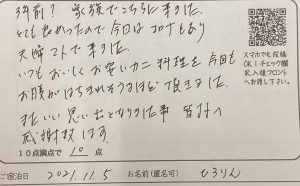 3年前? 家族でこちらに来ました。
とても良かったので今日はコロナもあり
夫婦2人で来ました。
いつもおいしくお安いカニ料理を今回も
お腹がはちきれそうなほど頂きました。
またいい思い出となりました事 皆様へ
感謝致します。
10点満点で 10 点
ご宿泊日 2021.11.5 お名前(匿名可) ひろりん
スマホでも投稿
OK!チェック欄
記入後フロント
へお渡し下さい。